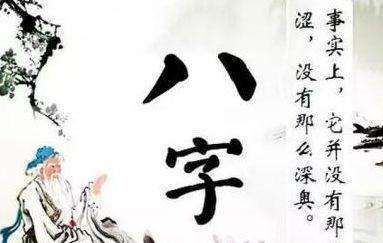 事实上，它并没有那
涩，没有那么深奥。
八字